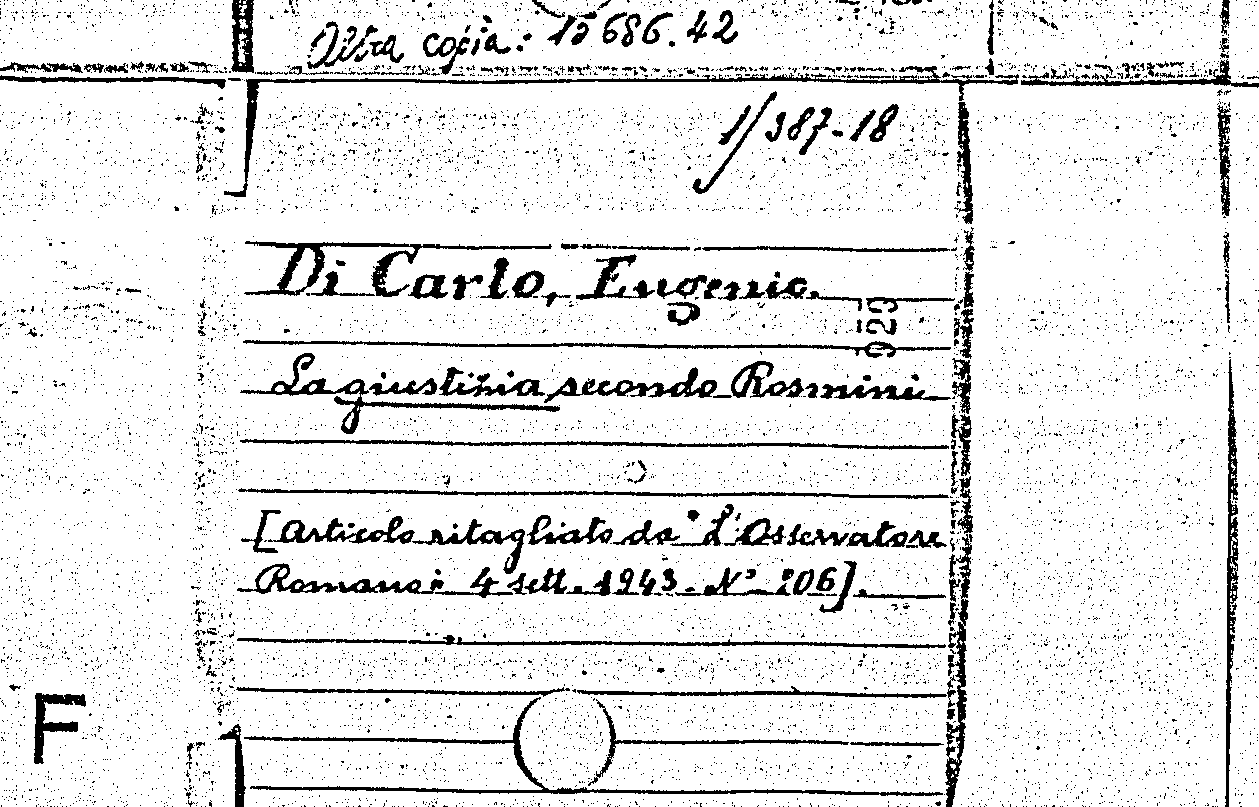 Altra copia: 15686.42
1/387-18
Di Carlo, Eugenio.
923
La giustizia secondo Rosmini
[Articolo ritagliato da "L'Osservatore
Romano" 4 sett. 1943. N° 206].
F